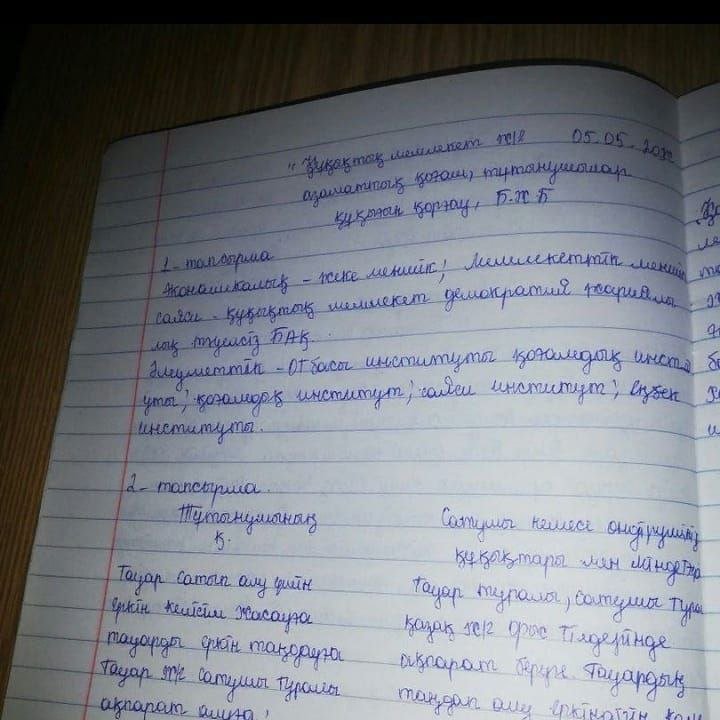 "Құқақтық мемлекет ж/е 05.05.
азаматтық қоғам, тұтынушылар
құқығын қорғау, Б.Ж.Б
1 - тапсырма
Экономикалық - жеке меншік; Мемлекеттік менші
саяси - құқықтық мемлекет демократия жариялы
лық тәуелсіз БАҚ.
Әлеуметтік - Отбасы институты қоғамдық инсти
уты; қоғамдық институт; саяси институт; еңбек
институты.
2 - тапсырма.
Тұтынушының
қ.
Тауар сатып алу үшін
еркін келісім жасауға
тауарды еркін таңдауға
Тауар ж/е сатушы туралы
ақпарат алуға;
Сатушы немесе өндірушінің
құқықтары мен міндеттер
Тауар туралы, сатушы тура
қазақ ж/е орыс тілдерінде
ақпарат беруге. Тауардың
таңдап алу еркіндігін қам